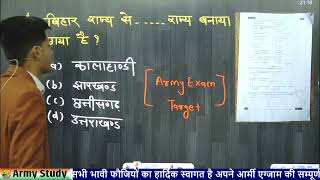 बिहार राज्य से ..... राज्य बनाया
गया है ?
(a) कालाहाण्डी
(b) झारखण्ड
(c) छत्तीसगढ
(d) उत्तराखण्ड
[Army Exam
Target]
Army Study
सभी भावी फौजियों का हार्दिक स्वागत है अपने आर्मी एग्जाम की सम्पूर्ण